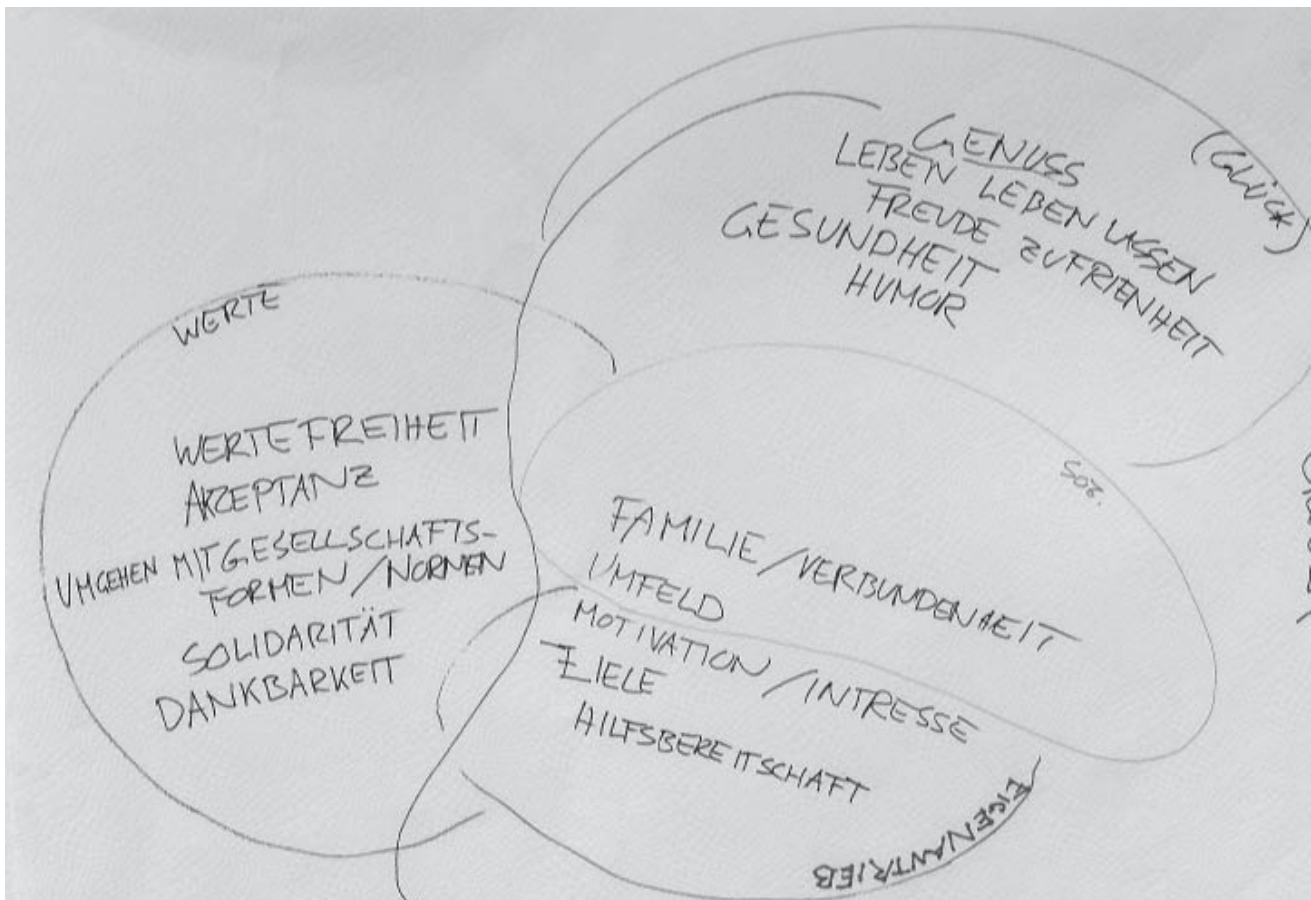 WERTE
WERTEFREIHEIT
AKZEPTANZ
UMGEHEN MIT GESELLSCHAFTS-
FORMEN / NORMEN
SOLIDARITÄT
DANKBARKEIT
(GLÜCK)
GENUSS
LEBEN LEBEN LASSEN
FREUDE ZUFRIENHEIT
GESUNDHEIT
HUMOR
SOZ.
FAMILIE / VERBUNDENHEIT
UMFELD
MOTIVATION / INTRESSE
ZIELE
HILFSBEREITSCHAFT
EIGENANTRIEB